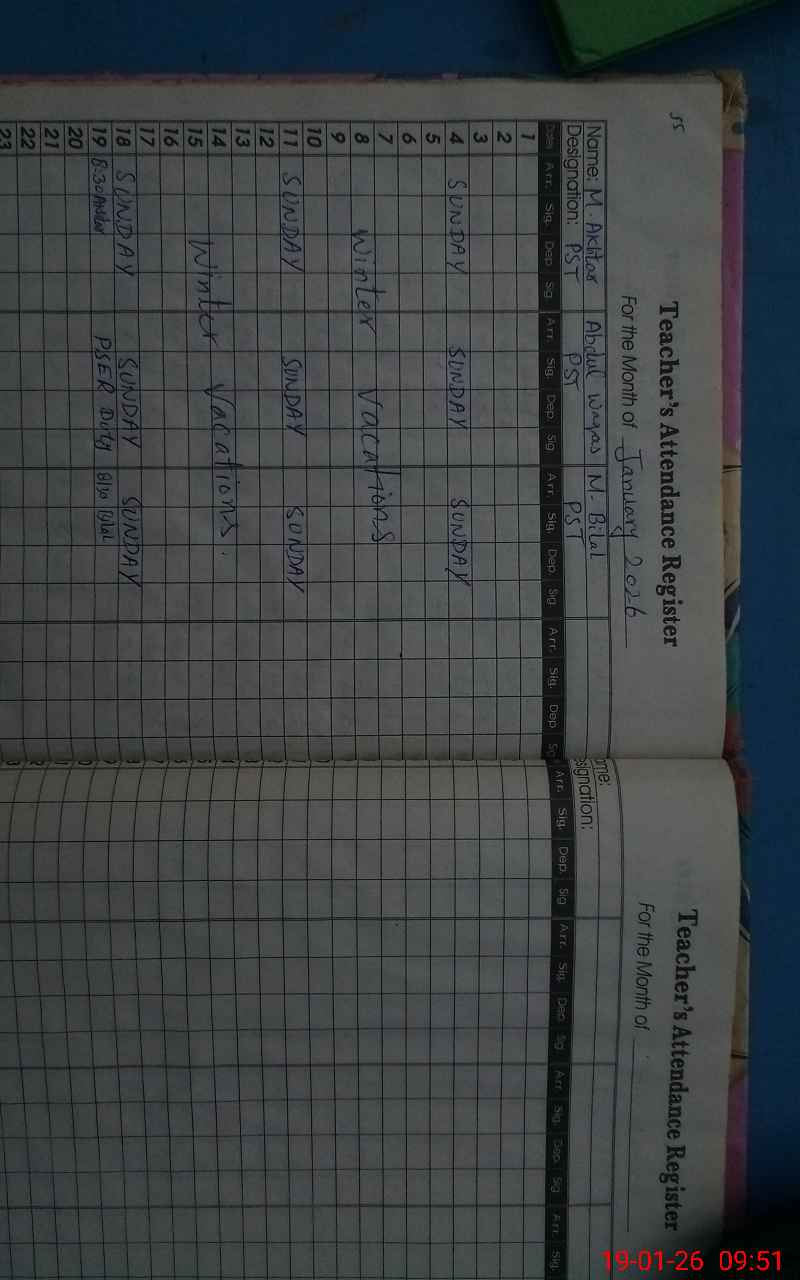 55
Teacher's Attendance Register
For the Month of January 2026
Name: M. Akhtar Abdul Waqas M. Bilal
Designation: PST PST PST
Dates Arr. Sig. Dep. Sig. Arr. Sig. Dep. Sig. Arr. Sig. Dep. Sig. Arr. Sig. Dep. Sig.
1
2
3
4 SUNDAY SUNDAY SUNDAY
5
6
7
8 Winter Vacations
9
10
11 SUNDAY SUNDAY SUNDAY
12
13
14
15 Winter Vacations.
16
17
18 SUNDAY SUNDAY SUNDAY
19 8:30 PSER Duty 8:30 Bilal
20
21
22
23
Teacher's Attendance Register
For the Month of
me:
signation:
Arr. Sig. Dep. Sig. Arr. Sig. Dep. Sig. Arr. Sig. Dep. Sig. Arr. Sig.
19-01-26 09:51